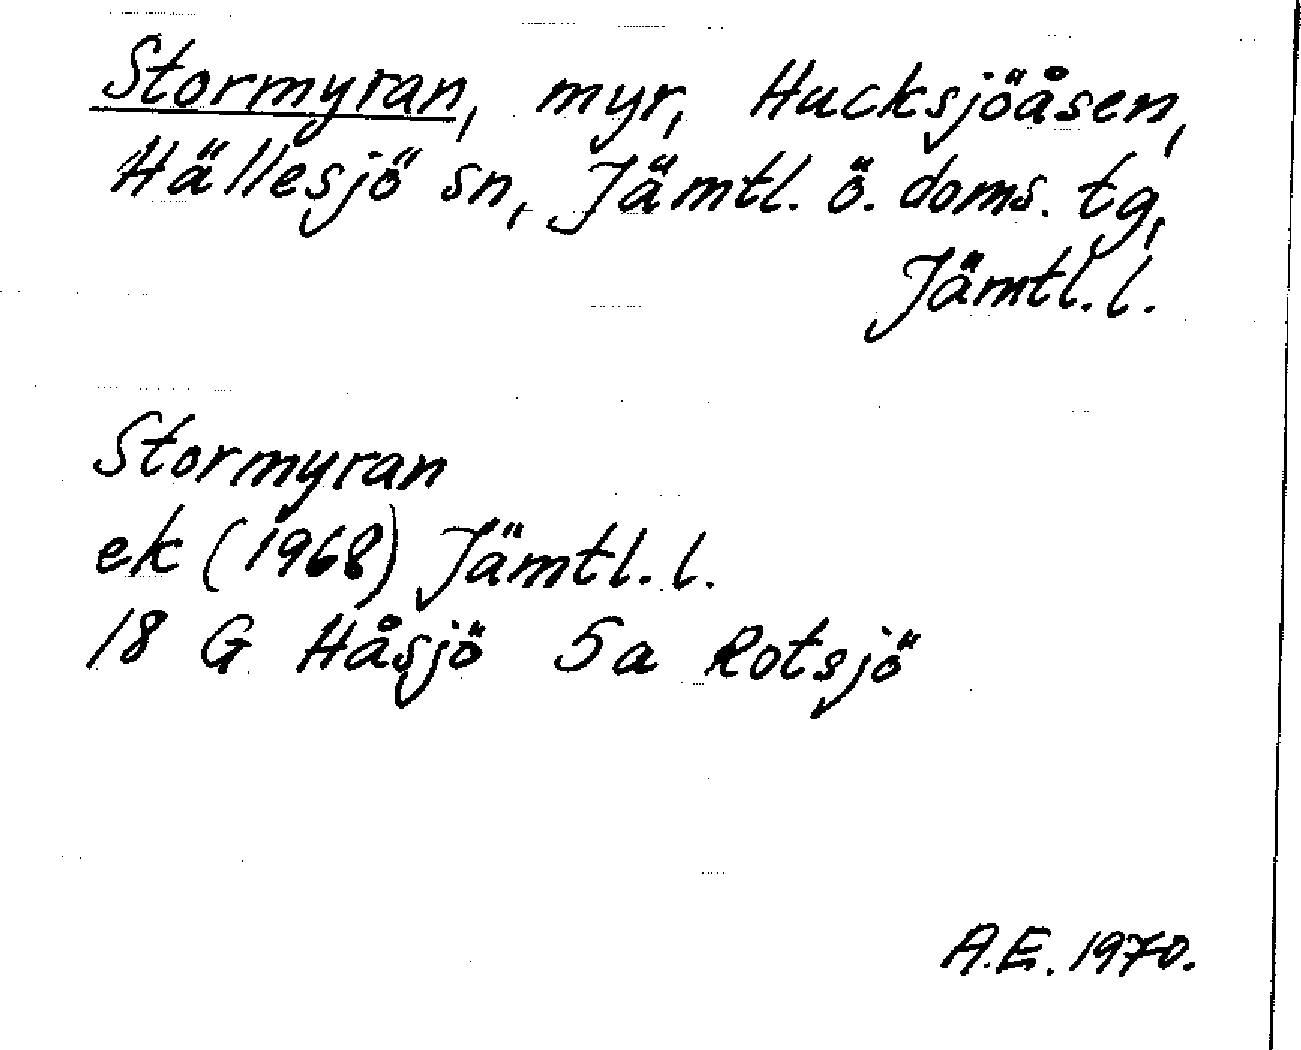 Stormyran, myr, Hucksjöåsen,
Hällesjö sn, Jämtl. ö. doms. tg,
Jämtl. l.
Stormyran
ek (1968) Jämtl. l.
18 G Håsjö 5a Rotsjö
A.E. 1970.